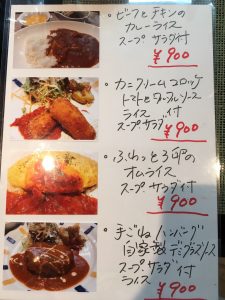 ・ビーフとチキンの
カレーライス
スープ サラダ付
¥900
・カニクリームコロッケ
トマトとタルタルソース
ライス 付
スープ.サラダ
¥900
・ふわっと3卵の
オムライス
スープ.サラダ付
¥900
・手ごねハンバーグ
自家製デミグラスソース
スープサラダ 付
ライス
¥900